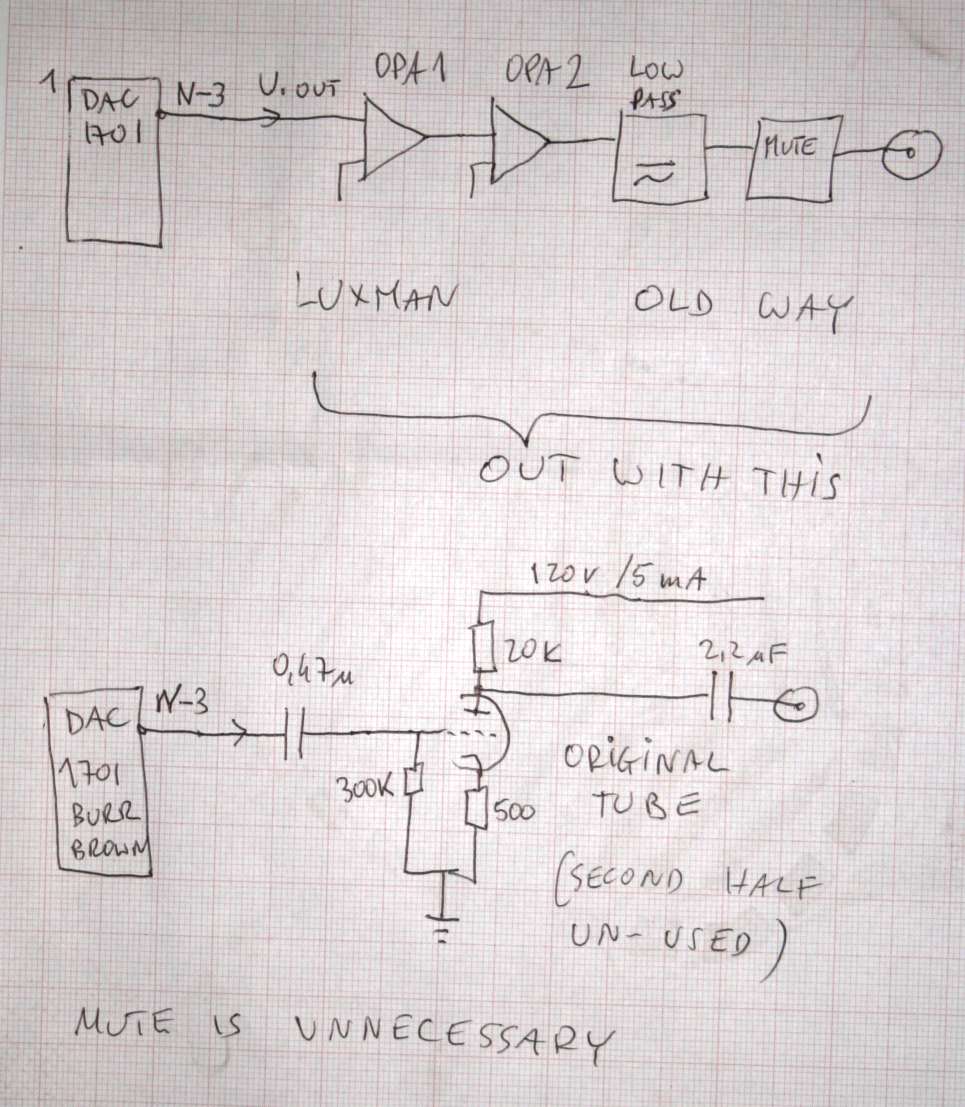 1 DAC
1701
N-3
U.OUT
OPA1
OPA2
LOW
PASS
MUTE
LUXMAN OLD WAY
OUT WITH THIS
120V /5mA
20K
2,2µF
0,47µ
DAC
1701
BURR
BROWN
N-3
300K
500
ORIGINAL
TUBE
(SECOND HALF
UN-USED)
MUTE IS UNNECESSARY